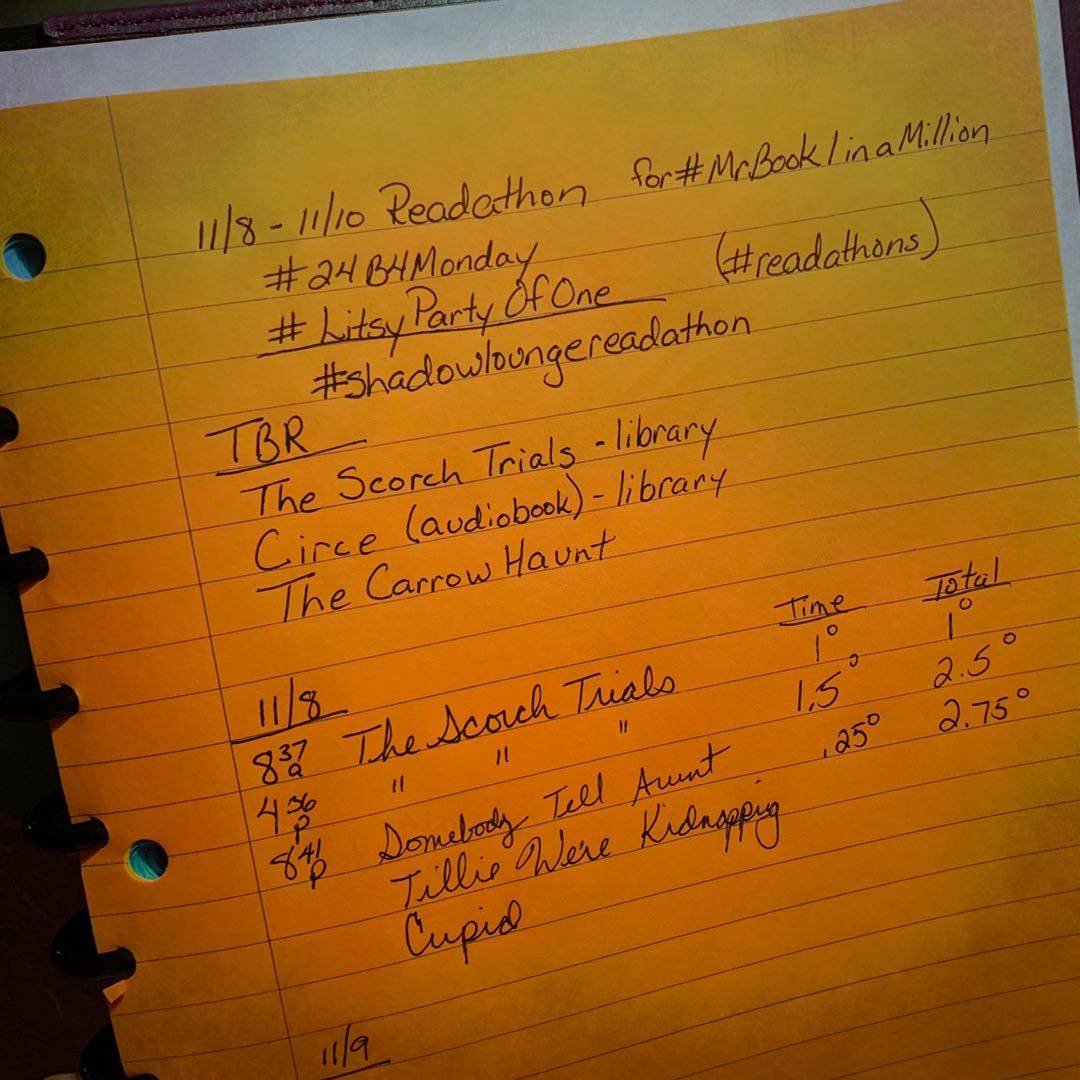 11/8 - 11/10 Readathon for #Mr.Book1inaMillion
#24B4Monday (#readathons)
#LitsyPartyOfOne
#shadowloungereadathon
TBR
The Scorch Trials - library
Circe (audiobook) - library
The Carrow Haunt
Time Total
11/8
8:37a The Scorch Trials 1° 1°
4:36p " " " 1.5° 2.5°
8:41p Somebody Tell Aunt .25° 2.75°
Tillie We're Kidnapping
Cupid
11/9